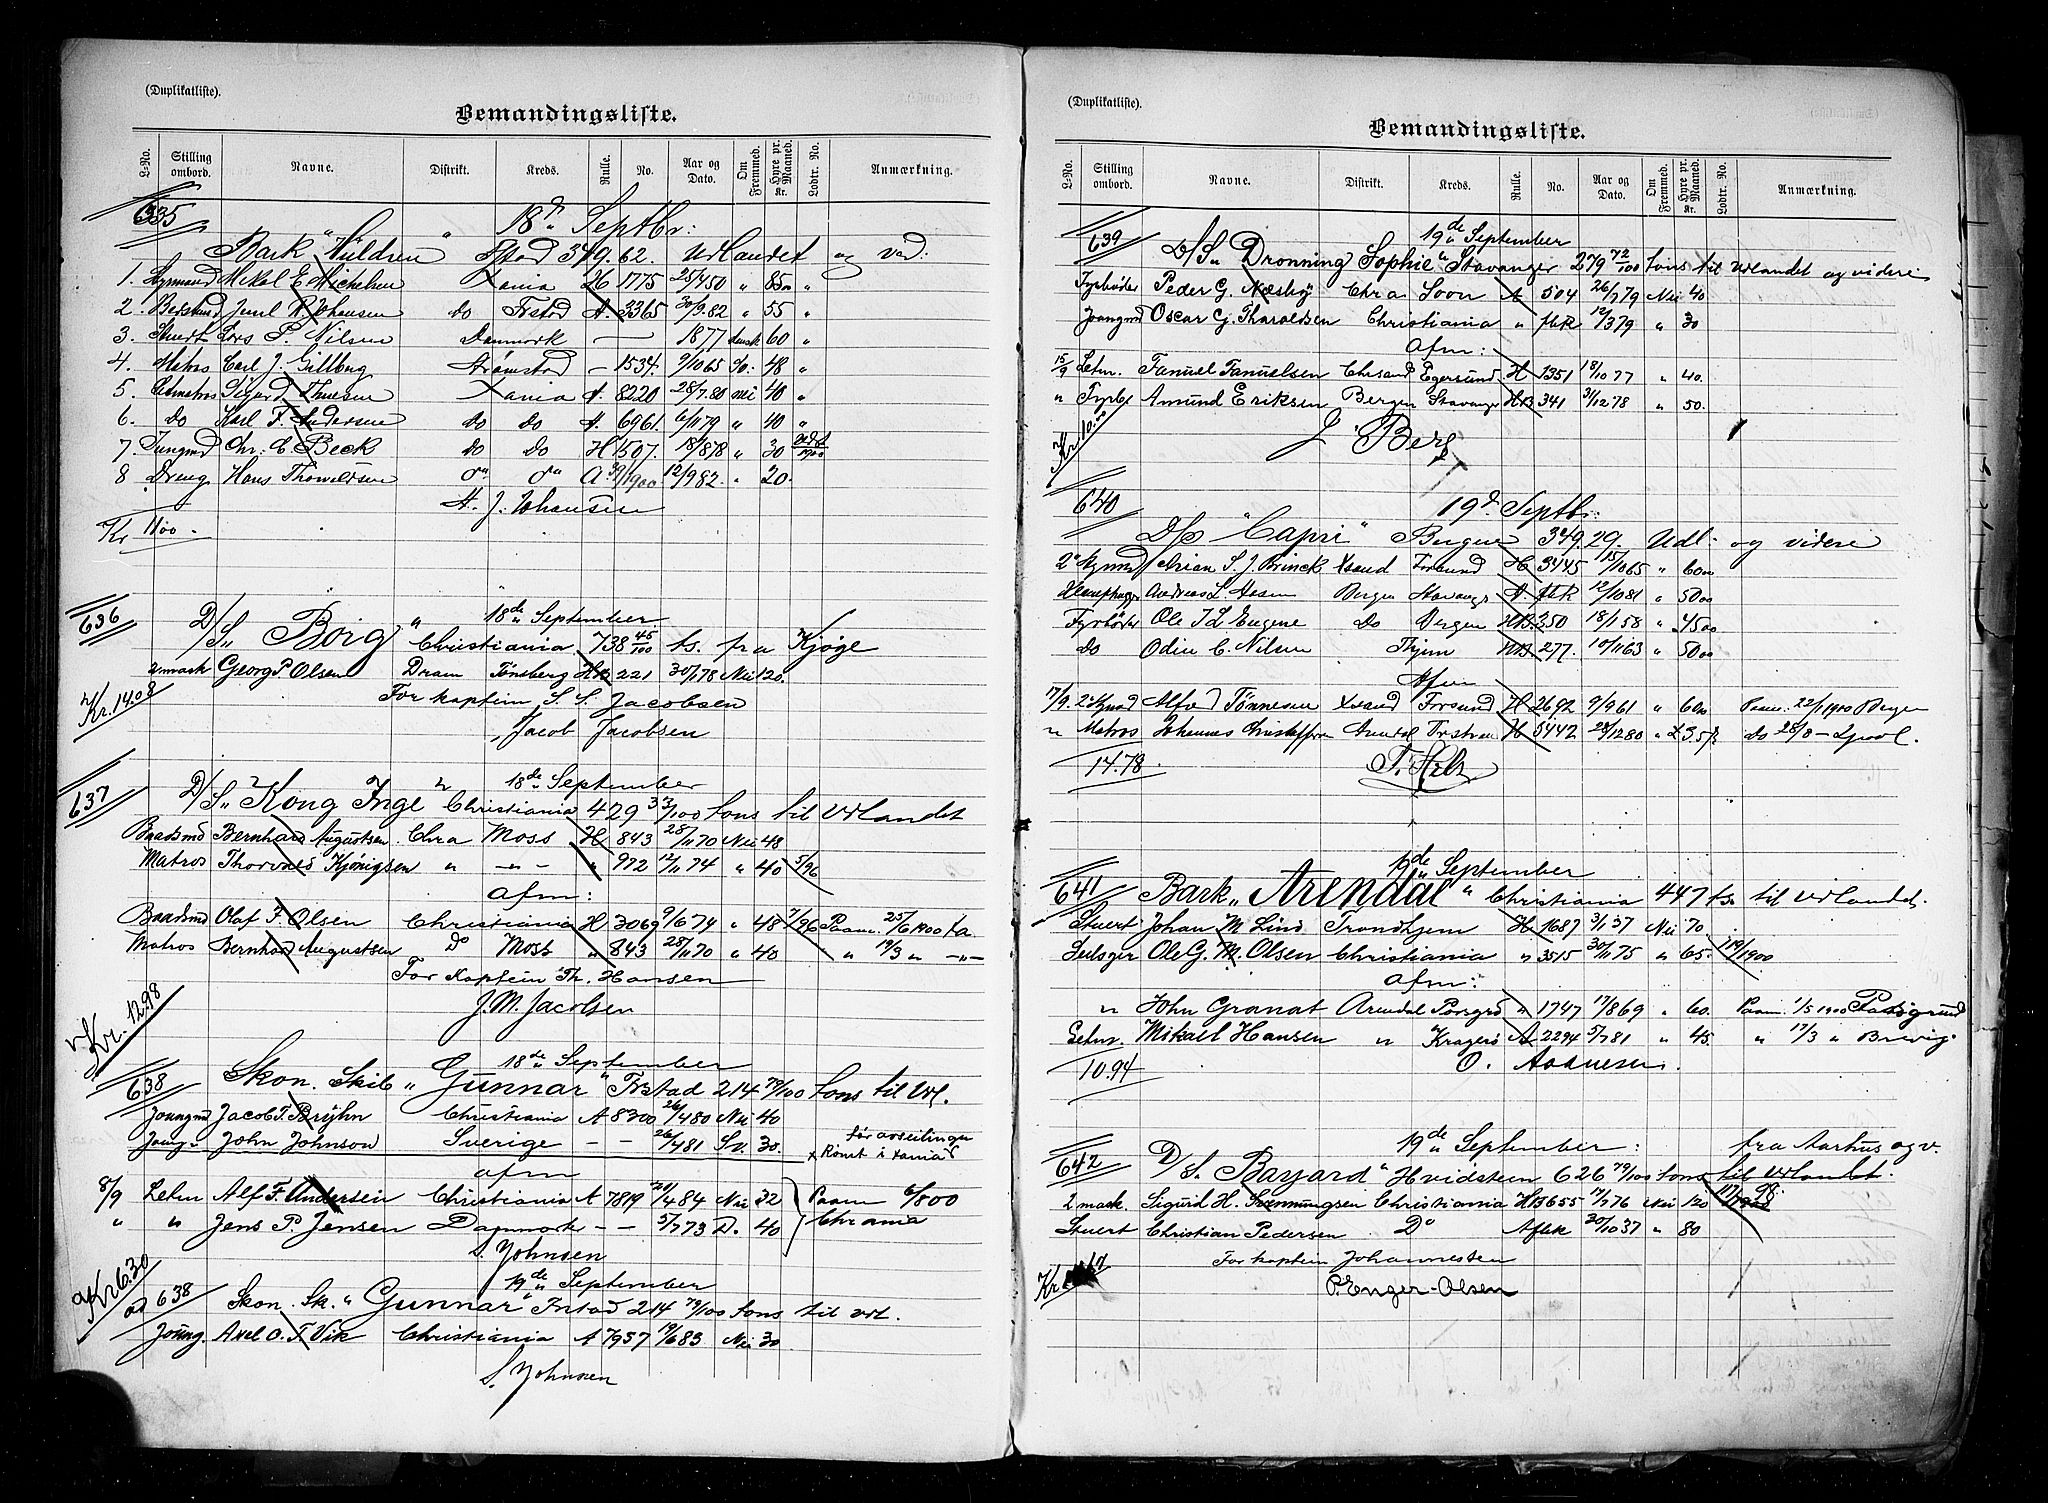 (Duplikatliste).
Bemandingsliste.
L-No. Stilling ombord. Navne. Distrikt. Kreds. Rulle. No. Aar og Dato. Om Fremmed. Hyre pr. Maaned. Kr. Lodtr. No. Anmærkning.
635 18d Septbr:
Bark " " Fstad 349.62. Udlandet og vid:
1. Styrmand Mikal E. Michelsen Xania H 1775 25/4 50 " 85 00 "
2. Bestmand Emil R. Johansen do Frstad A. 3365 30/9.82 " 55 "
3. Stuert Lars P. Nilsen Danmark — 1877 dansk 60 "
4. Matros Carl J. Gillberg Strømstad - 1534. 9/10 65 do: 48 "
5. Letmatros Sigurd Thuesen Xania A. 8220 28/7.80 nei 40 "
6. do Karl F. Andersen do do A. 6961. 6/11 79 " 40 "
7. Jungmd Chr. C. Beck do do H 1507. 18/8 78 " 30
8 Dreng Hans Thorvildsen d" d" A. 39/1900 12/9 82. " 20.
A. J. Johansen
Kr 11 00 -
636 18de September
D/S "Borg" Christiania 738 45/100 ts. fra Kjøge
2 mask Georg P. Olsen Dram Tønsberg HB 221 30/1 78 Nei 120.
For kaptein S. S. Jacobsen
Kr. 14.08
Jacob Jacobsen
637 18de September
D/S "Kong Inge" Christiania 429 33/100 tons til Udlandet
Baadsmd Bernhard Augustsen Chra Moss H 843 28/11 70 Nei 48
Matros Thorvald Kjönigsen " - " - " 972 12/11 74 " 40 5/96
Afm:
Baadsmd Olaf F. Olsen Christiania H 3069 9/6 74 " 48 7/96 Paam. 25/6 1900 Xa
Matros Bernhard Augustsen Do Moss " 843 28/11 70 " 40 " 19/3 " - " -
For Kaptein Th. Hansen
J. M. Jacobsen
Kr. 12.98
638 18de September
Skon. Skib "Gunnar" Frstad 214 79/100 tons til Udl.
Joungmd Jacob F. Bryhn Christiania A 8300 26/4 80 Nei 40
Joung - John Johnson Sverige - - 26/4 81 Sv. 30. før avseilingen
x Rømt i Xania
Afm
8/9 Letm Alf F. Andersen Christiania A 7819 20/4 84 Nei 32 Paam 6/8 00
" " Jens P. Jensen Danmark - - 5/7 73 D. 40 Chrania
S. Johnsen
Kr 6.30
ad 638 19de September
Skon. Sk. "Gunnar" Frstad 214 79/100 tons til Udl.
Joung. Axel O. F. Vik Christiania A 7957 19/6 83 Nei 30
S. Johnsen
(Duplikatliste).
Bemandingsliste.
L-No. Stilling ombord. Navne. Distrikt. Kreds. Rulle. No. Aar og Dato. Om Fremmed. Hyre pr. Maaned. Kr. Lodtr. No. Anmærkning.
639 19de September
D/S "Dronning Sophie" Stavanger 279 72/100 tons til Udlandet og videre
Fyrbøder Peder G. Næsby Chra Soon A 504 26/7 79 Nei 40
Joungmd Oscar G. Tharaldsen Christiania " fbk 12/3 79 " 30
Afm:
15/9 Letm. Fanuel Fanuelsen Chrsand Egersund H 1351 18/10 77 " 40.
" Fyrbd Amund Eriksen Bergen Stavanger HB 341 3/12 78 " 50.
J. Berg
640 19d Septbr:
D/s "Capri" Bergen 349.29. Udl: og videre
2 Styrmd Adrian S. J. Brinck Xsand Farsund H 3445 15/10 65 " 60 00
Andreas L. Bergen Stavangr A fbk 12/10 81 " 50 00
Fyrbøder Ole J. L. Eugene do Bergen HB. 350 18/1 58 " 45 00
do Odin C. Nilsen Thjem HB 277. 10/11 63 " 50 00
Afm
7/9. 2 Stymd Alfred Tönnesen Xsand Farsund H 2692 9/9 61 " 60 00 Paam. 22/1 1900 Bergen
" Matros Johannes Christoffersen Arendal H 5442 28/12 80 " do 28/8 -
14.78.
641 19de September
Bark "Arendal" Christiania 447 ts til Udlandet.
Stuert Johan M. Lind Trondhjem H 1687 3/1 37 Nei 70.
Seilsger Ole G. M. Olsen Christiania " 3515 30/11 75 " 65. 119/1900
Afm:
" John Granat Arendal Porsgrd " 1747 17/8 69 " 60. Paam. 1/5 1900 Porsgrund
Letm. Mikael Hansen " Kragerö A 2294 5/7 81 " 45. " 17/3 " Brevig.
10.94 O. Aadnesen.
642 19de September: fra Aarhus og v.
D/S. "Bayard" Hvidsten 626 79/100 tons til Udlandet.
2 mask. Sigurd H. Svennungsen Christiania HB 655 17/7 76 Nei 120
Stuert Christian Pedersen Do A fbk 30/10 37 " 80
For kaptein Johannessen
Kr
P. Enger-Olsen